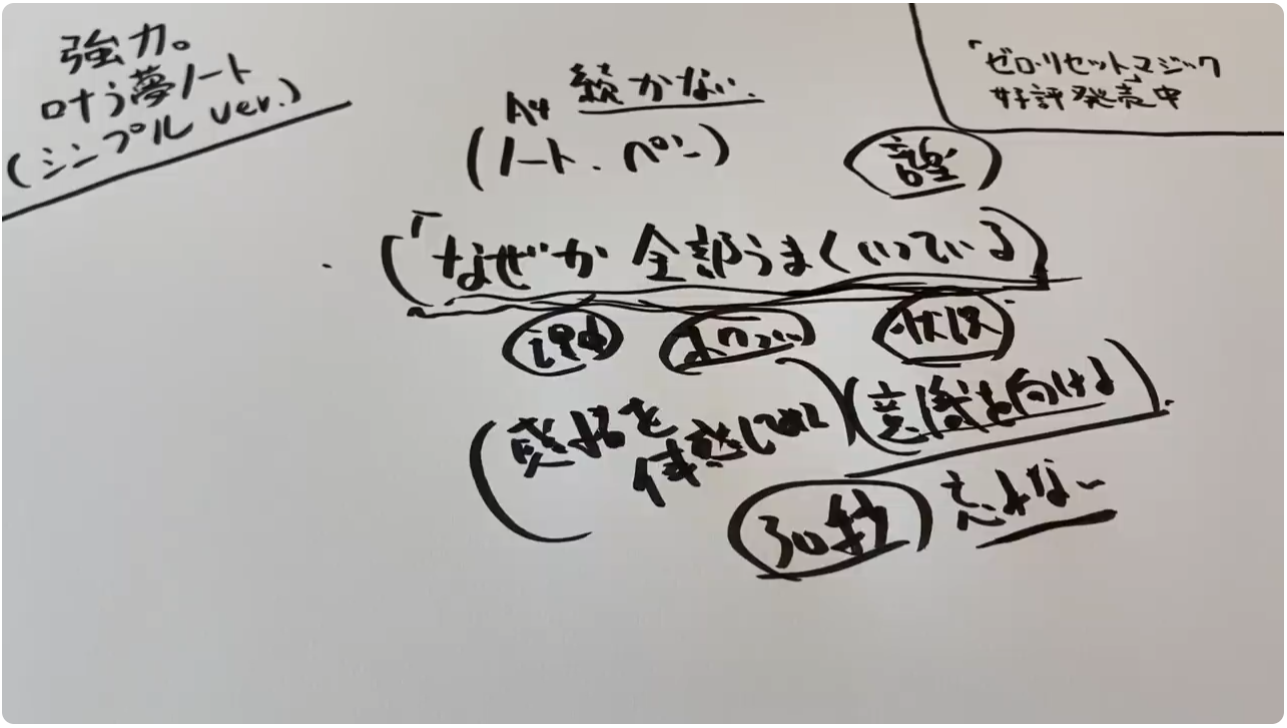 強力。
叶う夢ノート
(シンプル ver.)
「ゼロ・リセットマジック」
好評発売中
続かない
A4
(ノート、ペン)
(「なぜか全部うまくいっている)
状況
(感情を
体感してみる)
(意識を向ける)
30秒
忘れない